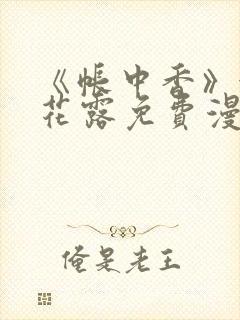 《帐中香》
花露免费漫
俺是老王